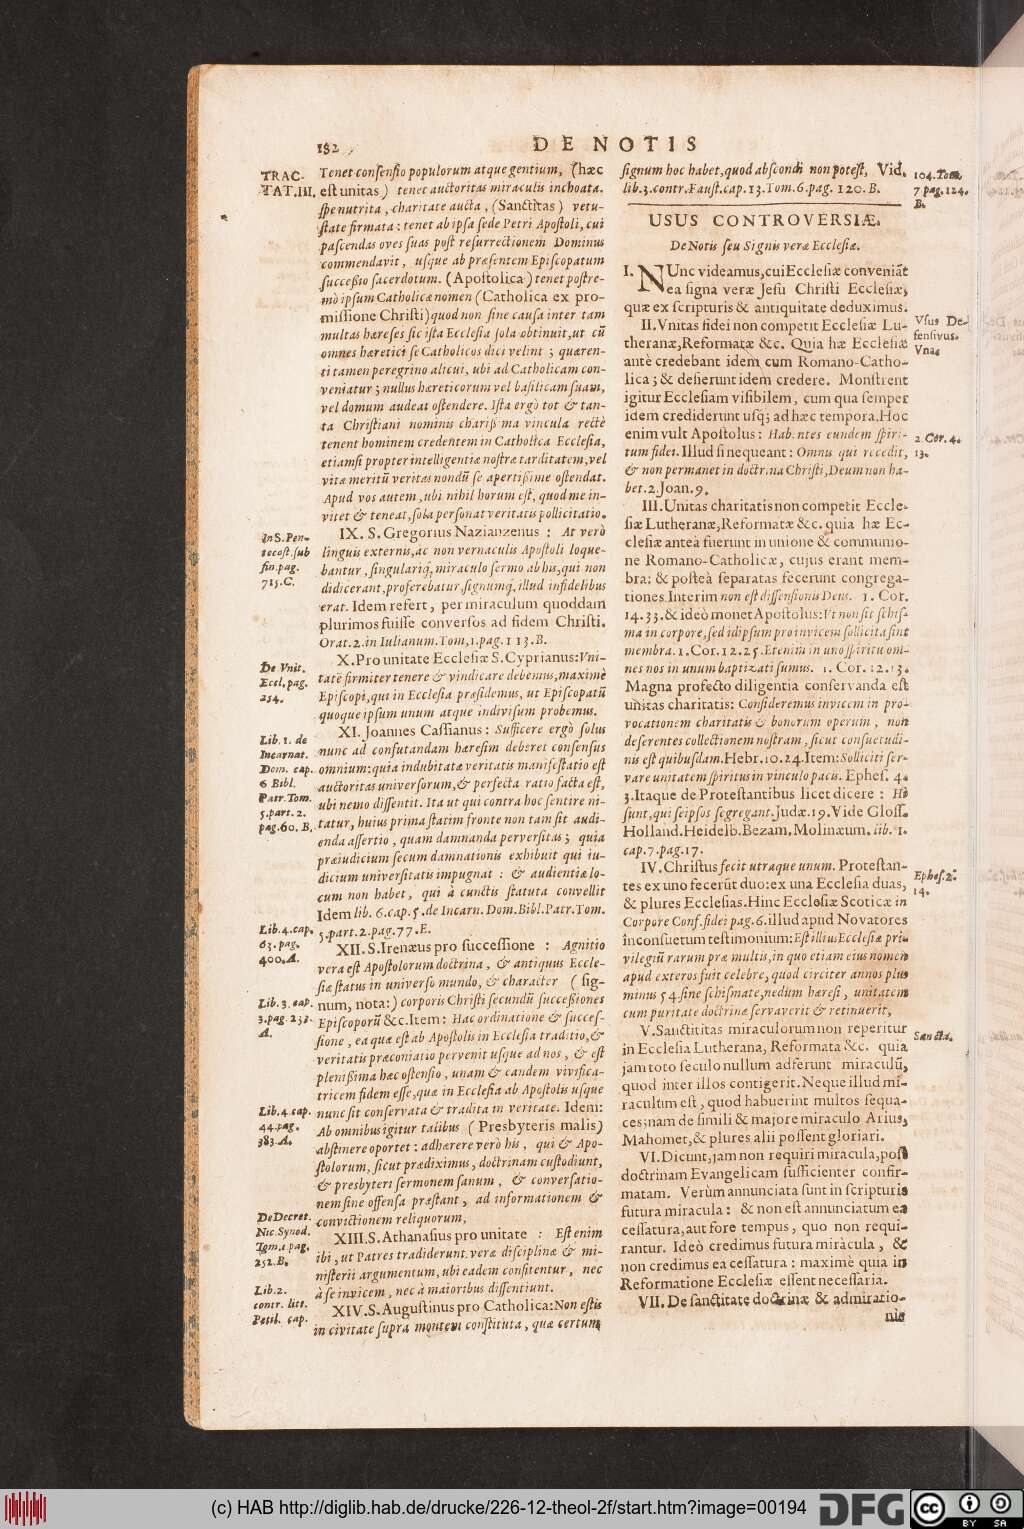 182
DE NOTIS
TRAC-
TAT.III.
Tenet consensio populorum atque gentium, (hæc
est unitas) tenet auctoritas miraculis inchoata.
spe nutrita, charitate aucta, (Sanctitas) vetu-
state firmata: tenet ab ipsa sede Petri Apostoli, cui
pascendas oves suas post resurrectionem Dominus
commendavit, usque ab præsentem Episcopatum
successio sacerdotum. (Apostolica) tenet postre-
mò ipsum Catholicæ nomen (Catholica ex pro-
missione Christi) quod non sine causa inter tam
multas hæreses sic ista Ecclesia sola obtinuit, ut cū
omnes hæretici se Catholicos dici velint; quæren-
ti tamen peregrino alicui, ubi ad Catholicam con-
veniatur; nullus hæreticorum vel basilicam suam,
vel domum audeat ostendere. Ista ergò tot & tan-
ta Christiani nominis chariss ma vincula rectè
tenent hominem credentem in Catholica Ecclesia,
etiamsi propter intelligentiæ nostræ tarditatem, vel
vitæ meritū veritas nondū se apertissime ostendat.
Apud vos autem, ubi nihil horum est, quod me in-
vitet & teneat, sola personat veritatis pollicitatio.
In S. Pen-
tecost. sub
fin. pag.
715. C.
IX. S. Gregorius Nazianzenus: At verò
linguis externis, ac non vernaculis Apostoli loque-
bantur, singulariq́, miraculo sermo ab his, qui non
didicerant, proferebatur, signumq́, illud infidelibus
erat. Idem refert, per miraculum quoddam
plurimos fuisse conversos ad fidem Christi.
Orat. 2. in Iulianum. Tom, 1. pag. 113. B.
De Vnit.
Eccl, pag.
254.
X. Pro unitate Ecclesiæ S. Cyprianus: Vni-
tatē firmiter tenere & vindicare debemus, maximè
Episcopi, qui in Ecclesia præsidemus, ut Episcopatū
quoque ipsum unum atque indivisum probemus.
Lib. 1. de
Incarnat.
Dom. cap.
6 Bibl.
Patr. Tom.
5. part. 2.
pag. 60. B.
XI. Joannes Cassianus: Sufficere ergò solus
nunc ad confutandam hæresim deberet consensus
omnium: quia indubitatæ veritatis manifestatio est
auctoritas universorum, & perfecta ratio facta est,
ubi nemo dissentit. Ita ut qui contra hoc sentire ni-
tatur, huius prima statim fronte non tam sit audi-
enda assertio, quam damnanda perversitas; quia
præiudicium secum damnationis exhibuit qui iu-
dicium universitatis impugnat: & audientiæ lo-
cum non habet, qui à cunctis statuta convellit
Idem lib. 6. cap. 5. de Incarn. Dom. Bibl. Patr. Tom.
5. part. 2. pag. 77. E.
Lib. 4. cap.
63. pag.
400. A.
XII. S. Irenæus pro successione: Agnitio
vera est Apostolorum doctrina, & antiquus Eccle-
siæ status in universo mundo, & character (sig-
num, nota:) corporis Christi secundū successiones
Episcoporū &c. Item: Hac ordinatione & succes-
sione, ea quæ est ab Apostolis in Ecclesia traditio, &
veritatis præconiatio pervenit usque ad nos, & est
plenissima hæc ostensio, unam & eandem vivifica-
tricem fidem esse, quæ in Ecclesia ab Apostolis usque
nunc sit conservata & tradita in veritate. Idem:
Ab omnibus igitur talibus (Presbyteris malis)
abstinere oportet: adhærere verò his, qui & Apo-
stolorum, sicut prædiximus, doctrinam custodiunt,
& presbyteri sermonem sanum, & conversatio-
nem sine offensa præstant, ad informationem &
convictionem reliquorum,
Lib. 3. cap.
3. pag. 232.
A.
Lib. 4. cap.
44. pag.
383. A.
De Decret.
Nic. Synod.
Tom. 1. pag.
252. B.
XIII. S. Athanasius pro unitate: Est enim
ibi, ut Patres tradiderunt. veræ disciplinæ & mi-
nisterii argumentum, ubi eadem confitentur, nec
à se invicem, nec à maioribus dissentiunt.
Lib. 2.
contr. litt.
Petil. cap.
XIV. S. Augustinus pro Catholica: Non estis
in civitate supra montem constituta, quæ certum
signum hoc habet, quod abscondi non potest, Vid.
lib. 3. contr. Faust. cap. 13. Tom. 6. pag. 120. B.
104. Tom.
7 pag. 124.
B.
USUS CONTROVERSIÆ.
De Notis seu Signis veræ Ecclesiæ.
I. NUnc videamus, cui Ecclesiæ conveniāt
ea signa veræ Jesu Christi Ecclesiæ,
quæ ex scripturis & antiquitate deduximus.
Vsus De-
fensivus.
Vna.
II. Vnitas fidei non competit Ecclesiæ Lu-
theranæ, Reformatæ &c. Quia hæ Ecclesiæ
antè credebant idem cum Romano-Catho-
lica; & desierunt idem credere. Monstrent
igitur Ecclesiam visibilem, cum qua semper
idem crediderunt usq; ad hæc tempora. Hoc
enim vult Apostolus: Habentes eundem spiri-
tum fidei. Illud si nequeant: Omnis qui recedit,
& non permanet in doctrina Christi, Deum non ha-
bet. 2. Joan. 9.
2. Cor. 4.
13.
III. Unitas charitatis non competit Eccle-
siæ Lutheranæ, Reformatæ &c. quia hæ Ec-
clesiæ anteà fuerunt in unione & communio-
ne Romano-Catholicæ, cujus erant mem-
bra; & posteà separatas fecerunt congrega-
tiones. Interim non est dissensionis Deus. 1. Cor.
14. 33. & ideò monet Apostolus: Vt non sit schis-
ma in corpore, sed idipsum pro invicem sollicita sint
membra. 1. Cor. 12. 25. Etenim in uno spiritu om-
nes nos in unum baptizati sumus. 1. Cor. 12. 13.
Magna profecto diligentia conservanda est
unitas charitatis: Consideremus invicem in pro-
vocationem charitatis & bonorum operum, non
deserentes collectionem nostram, sicut consuetudi-
nis est quibusdam. Hebr. 10. 24. Item: Solliciti ser-
vare unitatem spiritus in vinculo pacis. Ephes. 4.
3. Itaque de Protestantibus licet dicere: Hi
sunt, qui seipsos segregant. Judæ. 19. Vide Gloss.
Holland. Heidelb. Bezam, Molinæum. lib. 1.
cap. 7. pag. 17.
Ephes. 2.
14.
IV. Christus fecit utraque unum. Protestan-
tes ex uno fecerūt duo: ex una Ecclesia duas,
& plures Ecclesias. Hinc Ecclesiæ Scoticæ in
Corpore Conf. fidei pag. 6. illud apud Novatores
inconsuetum testimonium: Est illius Ecclesiæ pri-
vilegiū rarum præ multis, in quo etiam eius nomen
apud exteros fuit celebre, quod circiter annos plus
minus 54. sine schismate, nedum hæresi, unitatem
cum puritate doctrinæ servaverit & retinuerit,
Sancta.
V. Sanctitas miraculorum non reperitur
in Ecclesia Lutherana, Reformata &c. quia
jam toto seculo nullum adferunt miraculū,
quod inter illos contigerit. Neque illud mi-
raculum est, quod habuerint multos sequa-
ces; nam de simili & majore miraculo Arius,
Mahomet, & plures alii possent gloriari.
VI. Dicunt, jam non requiri miracula, post
doctrinam Evangelicam sufficienter confir-
matam. Verùm annunciata sunt in scripturis
futura miracula: & non est annunciatum ea
cessatura, aut fore tempus, quo non requi-
rantur. Ideò credimus futura miracula, &
non credimus ea cessatura: maximè quia in
Reformatione Ecclesiæ essent necessaria.
VII. De sanctitate doctrinæ & admiratio-
nis
(c) HAB http://diglib.hab.de/drucke/226-12-theol-2f/start.htm?image=00194
DFG
cc
BY SA